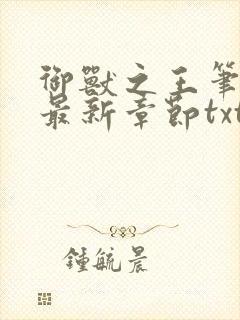 御獸之王筆
最新章節txt
鍾毓晨